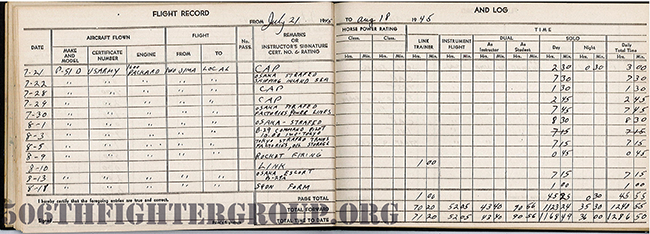 FLIGHT RECORD
FROM July 21 1945
TO Aug 18 1945
AND LOG
DATE
AIRCRAFT FLOWN
MAKE AND MODEL
CERTIFICATE NUMBER
ENGINE
FLIGHT
FROM
TO
No. PASS.
REMARKS OR INSTRUCTOR'S SIGNATURE CERT. NO. & RATING
HORSE POWER RATING
Class.
Class.
LINK TRAINER
INSTRUMENT FLIGHT
TIME
DUAL
SOLO
As Instructor
As Student
Day
Night
Daily Total Time
Hrs. Min.
7-21 P-51 D USARMY PACKARD IWO JIMA LOCAL CAP 2 30 0 30 3 00
7-22 OSAKA STRAFED SHIPPING INLAND SEA 7 30 7 30
7-28 CAP 1 30 1 30
7-29 CAP 2 45 2 45
7-30 OSAKA STRAFED FACTORIES POWER LINES 7 45 7 45
8-1 OSAKA - STRAFED 8 30 8 30
8-3 7 15 7 15
8-5 TOKYO STRAFED TRAINS FACTORIES, OIL STORAGE 7 45 7 45
8-9 ROCKET FIRING 0 45 0 45
8-10 LINK 1 00
8-13 OSAKA ESCORT 7 15 7 15
8-18 FORM 1 00 1 00
I hereby certify that the foregoing entries are true and correct.
PAGE TOTAL 1 00 0 30 55
TOTAL FORWARD 70 20 52 05 90 56 35 30
TOTAL TIME TO DATE 71 20 52 05 90 56 36 00 1286 50
506THFIGHTERGROUP.ORG